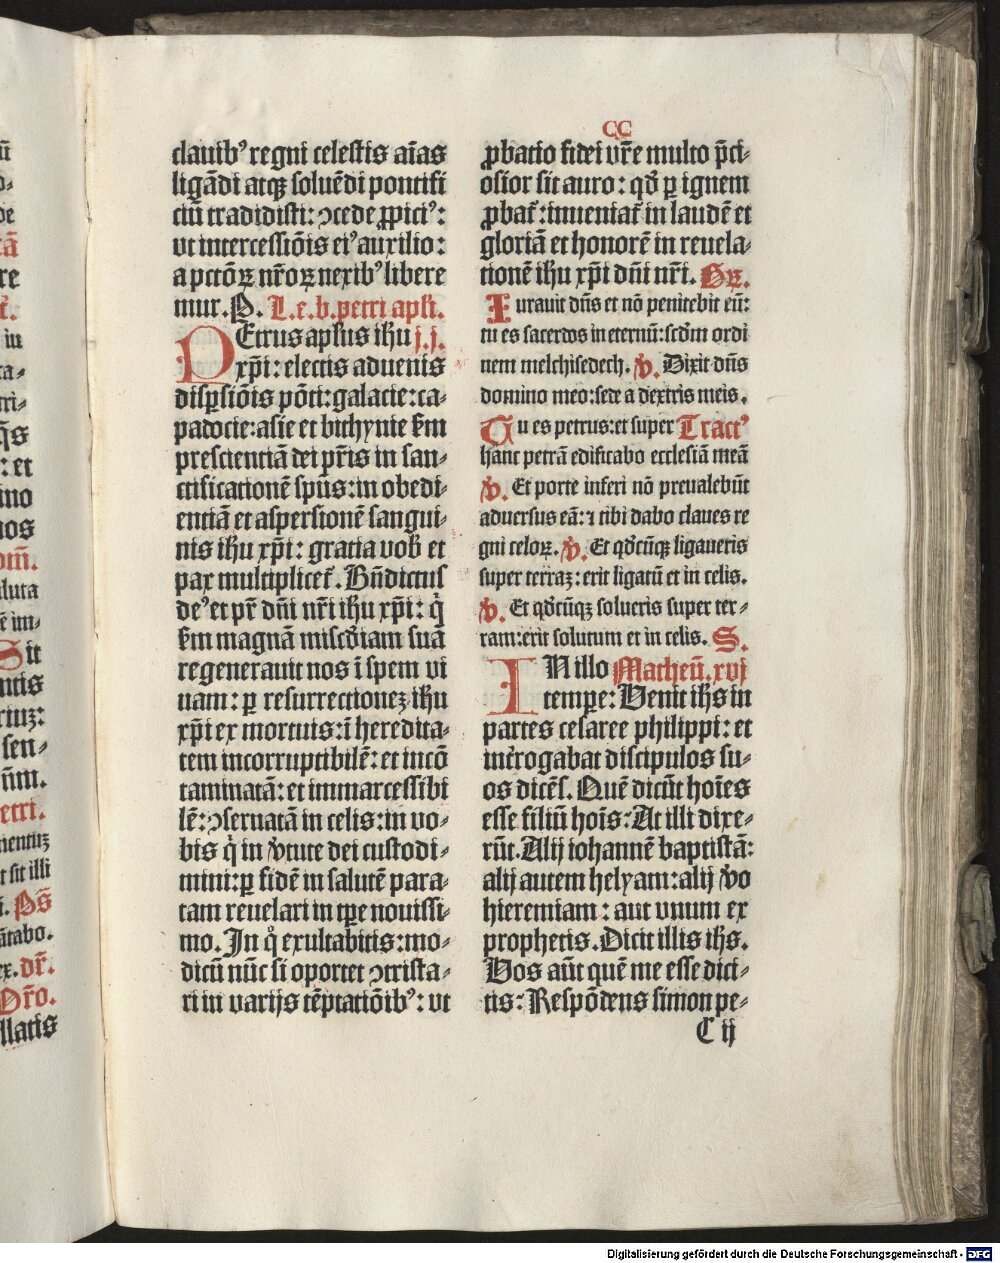 CC
clauibꝰ regni celestis aīas
ligādi atqꝫ soluēdi pontifi
ciū tradidisti: ↄcede ꝓpiciꝰ:
vt intercessiōis eiꝰ auxilio:
a pctōꝝ nr̄oꝝ nexibꝰ libere
mur. P. L.e.b.petri apłi.
PEtrus apłus ihu j.j.
xp̄i: electis aduenis
disꝑsiōis pōti: galacie: ca-
padocie: asie et bithynie ẜm
prescientiā dei pr̄is in san-
ctificationē sp̄us: in obedi-
entiā et aspersionē sangui-
nis ihu xp̄i: gratia vob̄ et
pax multiplicet̄. Bn̄dictus
deꝰ et pr̄ dn̄i nr̄i ihu xp̄i: q̇
ẜm magnā misc̄diam suā
regenerauit nos ī spem vi
uam: ꝑ resurrectionez ihu
xp̄i ex mortuis: ī heredita-
tem incorruptibilē: et incō
taminatā: et immarcessibi
lē: ↄseruatā in celis: in vo-
bis q̇ in v̓tute dei custodi-
mini: ꝑ fidē in salutē para-
tam reuelari in tꝑe nouissi-
mo. In q̊ exultabitis: mo-
dicū nūc si oportet ↄtrista-
ri in varijs tēptatiōibꝰ: vt
ꝓbatio fidei vr̄e multo p̄ci-
osior sit auro: qd̓ ꝑ ignem
ꝓbat̄: inueniat̄ in laudē et
gloriā et honorē in reuela-
tionē ihu xp̄i dn̄i nr̄i. Gꝝ.
Iurauit dn̄s et nō penitebit eū:
tu es sacerdos in eternū: scd̓m ordi
nem melchisedech. v. Dixit dn̄s
domino meo: sede a dextris meis.
Tu es petrus: et super Tractꝰ
hanc petrā edificabo ecclesiā meā
v. Et porte inferi nō preualebūt
aduersus eā: ⁊ tibi dabo claues re
gni celoꝝ. v. Et qd̓cūqꝫ ligaueris
super terraꝫ: erit ligatū et in celis.
v. Et qd̓cūqꝫ solueris super ter-
ram: erit solutum et in celis. S.
IN illo Matheū. xvj
tempe: Venit ihs in
partes cesaree philippi: et
int̓rogabat discipulos su-
os dicēs. Quē dicūt hoīes
esse filiū hoīs: At illi dixe-
rūt. Alij iohannē baptistā:
alij autem helyam: alij v̓o
hieremiam: aut vnum ex
prophetis. Dicit illis ihs.
Vos aūt quē me esse dici-
tis: Respōdens simon pe-
C ij
Digitalisierung gefördert durch die Deutsche Forschungsgemeinschaft - DFG